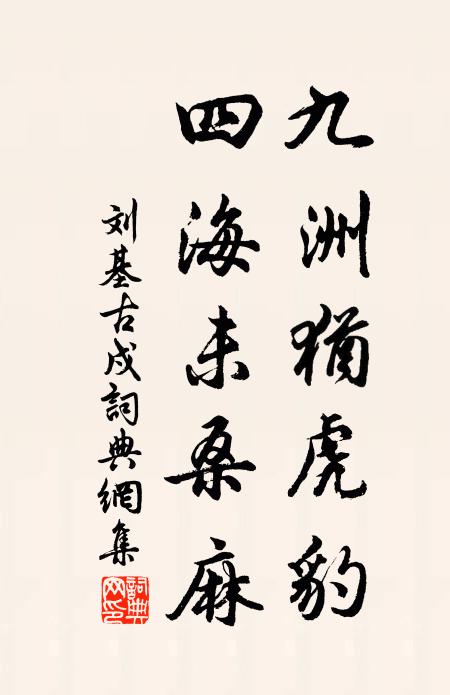 九洲猶虎豹
四海未桑麻
刘基古戍詞典網集
詞典
网印